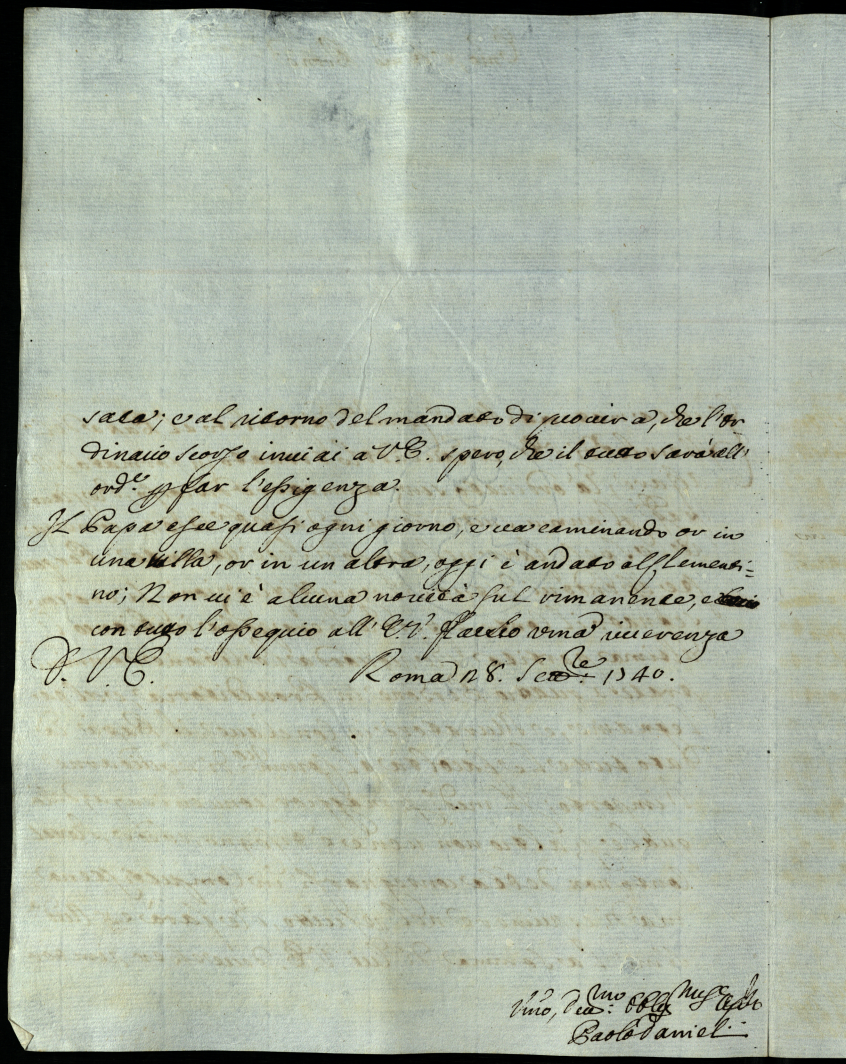 sata; e al ritorno del mandato di procura, che l'or
dinario scorso inviai a V.E. spero, che il tutto sarà all'
ord.e per far l'essigenza.
Il Papa esce quasi ogni giorno, e va caminando or in
una villa, or in un altra, oggi è andato al Clementi=
no; Non vi è alcuna novità sul rimanente, e
con tutto l'ossequio all' E.V. faccio uma riverenza
D. V. E. Roma 28. Sett.re 1740.
Um̃o, Dev.mo Obblig.
Paolo Danieli